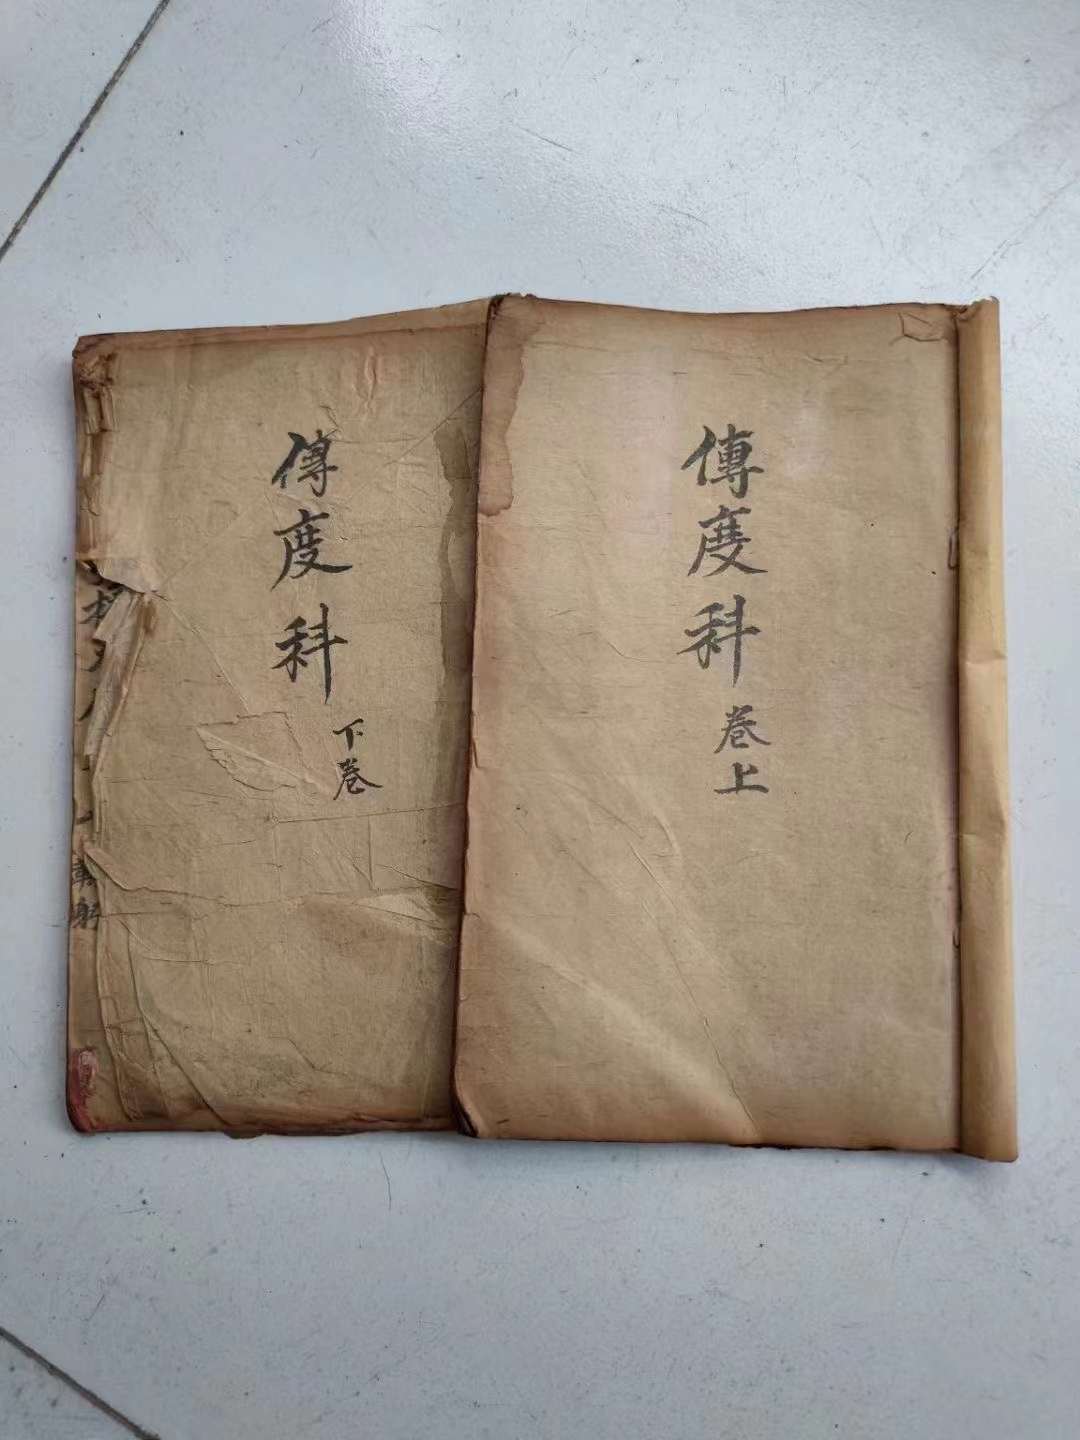 傳度科
卷上
傳度科
下卷